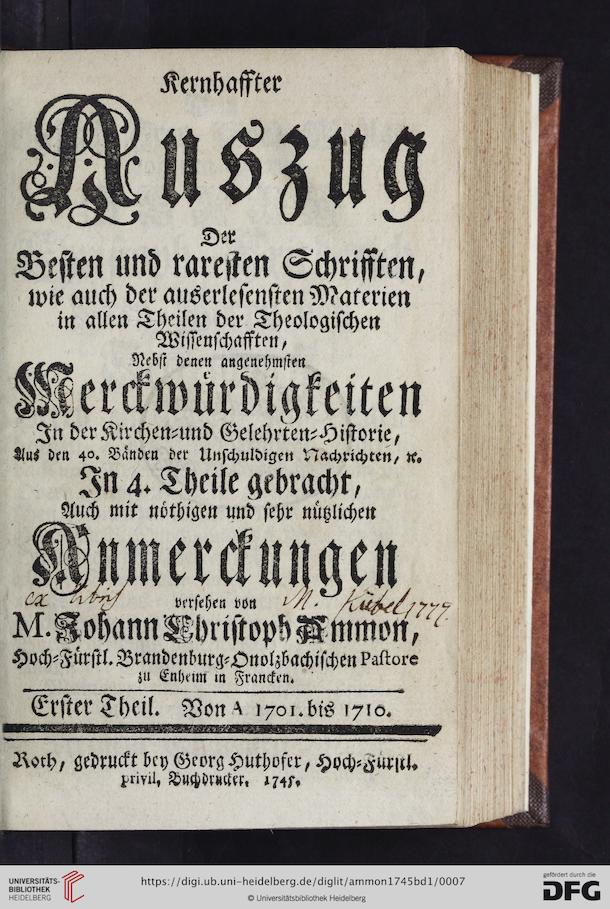 Kernhaffter
Auszug
Der
Besten und raresten Schrifften,
wie auch der auserlesensten Materien
in allen Theilen der Theologischen
Wissenschafften,
Nebst denen angenehmsten
Merckwürdigkeiten
In der Kirchen-und Gelehrten-Historie,
Aus den 40. Bänden der Unschuldigen Nachrichten, ꝛc.
In 4. Theile gebracht,
Auch mit nöthigen und sehr nützlichen
Anmerckungen
ex libris M. Kübel 1779.
versehen von
M. Johann Christoph Ammon,
Hoch-Fürstl. Brandenburg-Onolzbachischen Pastore
zu Enheim in Francken.
Erster Theil. Von A 1701. bis 1710.
Roth, gedruckt bey Georg Huthofer, Hoch-Fürstl.
privil. Buchdrucker. 1745.
UNIVERSITÄTS-
BIBLIOTHEK
HEIDELBERG
https://digi.ub.uni-heidelberg.de/diglit/ammon1745bd1/0007
© Universitätsbibliothek Heidelberg
gefördert durch die
DFG